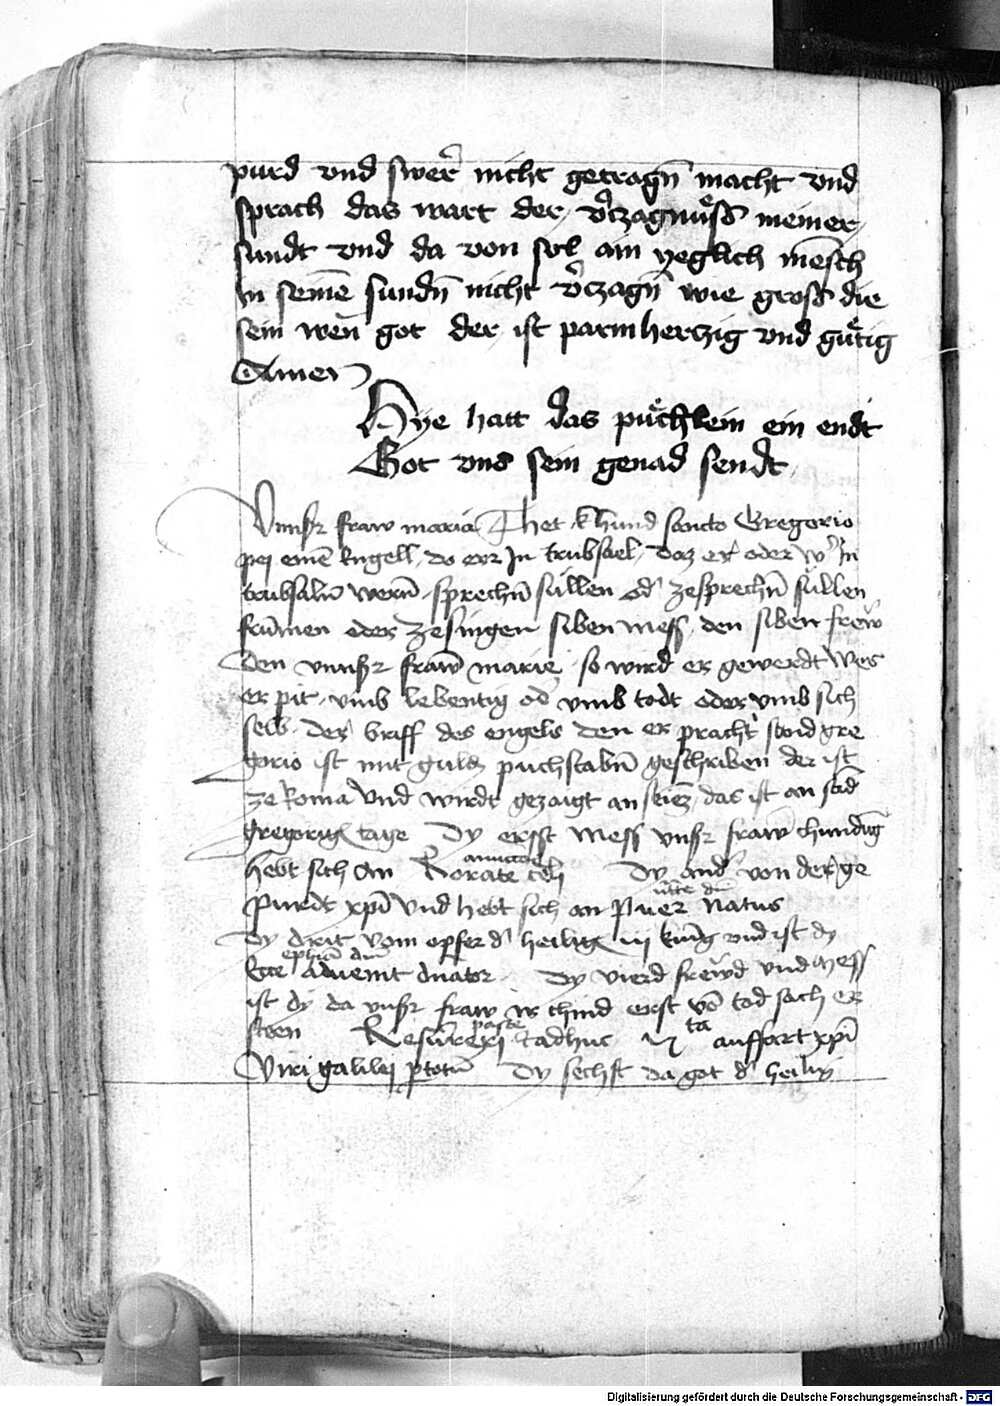 purd vnd swer̄ nicht getragn̄ macht vnd
sprach das wart der v̄czagnuͤss meiner
sundt vnd da von sol ain yeglich mēsch
in seinē sundn̄ nicht v̄czagn̄ wie gross die
sein wen̄ got der ist parmherczig vnd guͤtig
Amen
Hye hatt das puͤchlein ein endt
Got vns sein genad sendt
Vnnsr fraw maria Thet khund sancto Gregorio
pej einē Engell do er In trubsael daz er oder w̄ In
trubsaln̄ wern̄ sprechn̄ sullen od̄ zesprechn̄ sullen
frūmen oder zesingen siben mess den siben frew
den vnnsr fraw marie so wird er gewerdt wes
er pit vmb lebentig od̄ vmb todt oder vmb sich
selb der briff des engels den er pracht sand gre
gorio ist mit guldn puchstabn̄ geschriben der ist
ze Roma Vnd wirdt gezaigt an seinez das ist an sād
gregorign tage Dy ersst mess vnsr fraw chundūg
hebt sich an Rorate celi Dy and̄ von der ge
purdt xp̄i Vnd hebt sich an Puer Natus
Dy drit vom opfer d̄ heilign iij kunig vnd ist dy
Ecce aduenit dnator Dy vierd frewd vnd mess
ist dy da vnsr fraw ir chind erst vō tod sach er
steen Resūrexi et adhuc v ta auffart xp̄i
Viri galilej p totū Dy sechst da got d̄ heilig
Digitalisierung gefördert durch die Deutsche Forschungsgemeinschaft - DFG